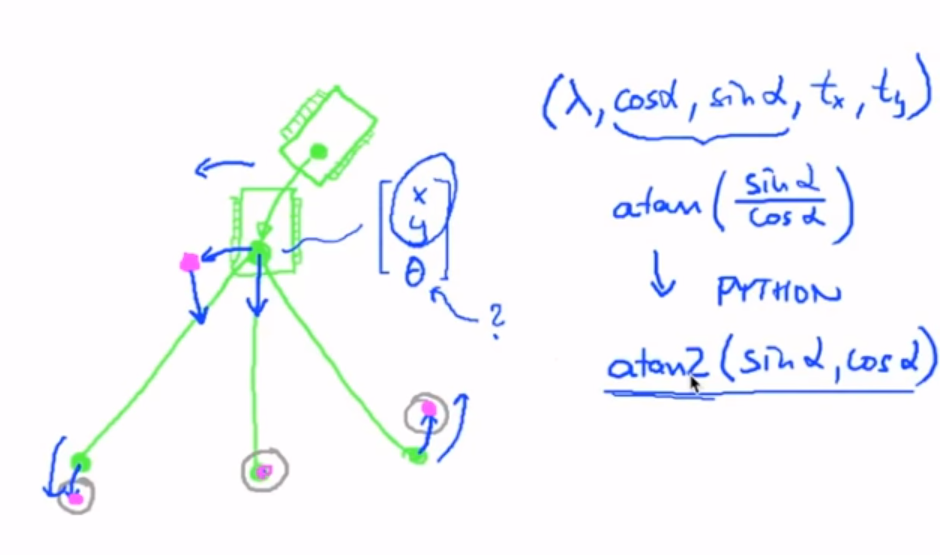 (λ, cosα, sinα, tx, ty)
atan(sinα/cosα)
↓ PYTHON
atan2(sinα, cosα)
[x
y
θ]
?